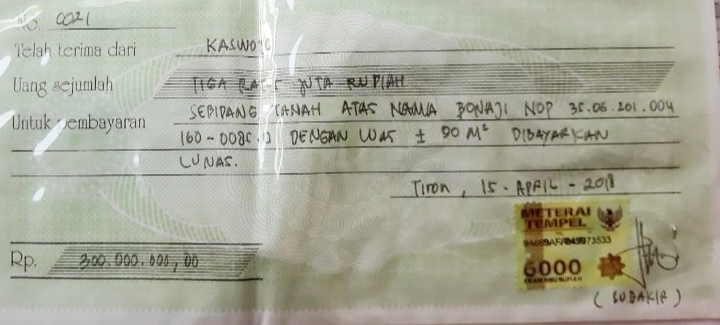 No. 0021
Telah terima dari KASWOTO
Uang sejumlah TIGA RATUS JUTA RUPIAH
Untuk pembayaran SEBIDANG TANAH ATAS NAMA BONAJI NOP 35.06.201.004
DENGAN LUAS ± 90 M² DIBAYARKAN
LUNAS.
Tiron, 15 - APRIL - 2018
METERAI
TEMPEL
6000
ENAM RIBU RUPIAH
Rp. 300.000.000,00
(SUDAKIR)